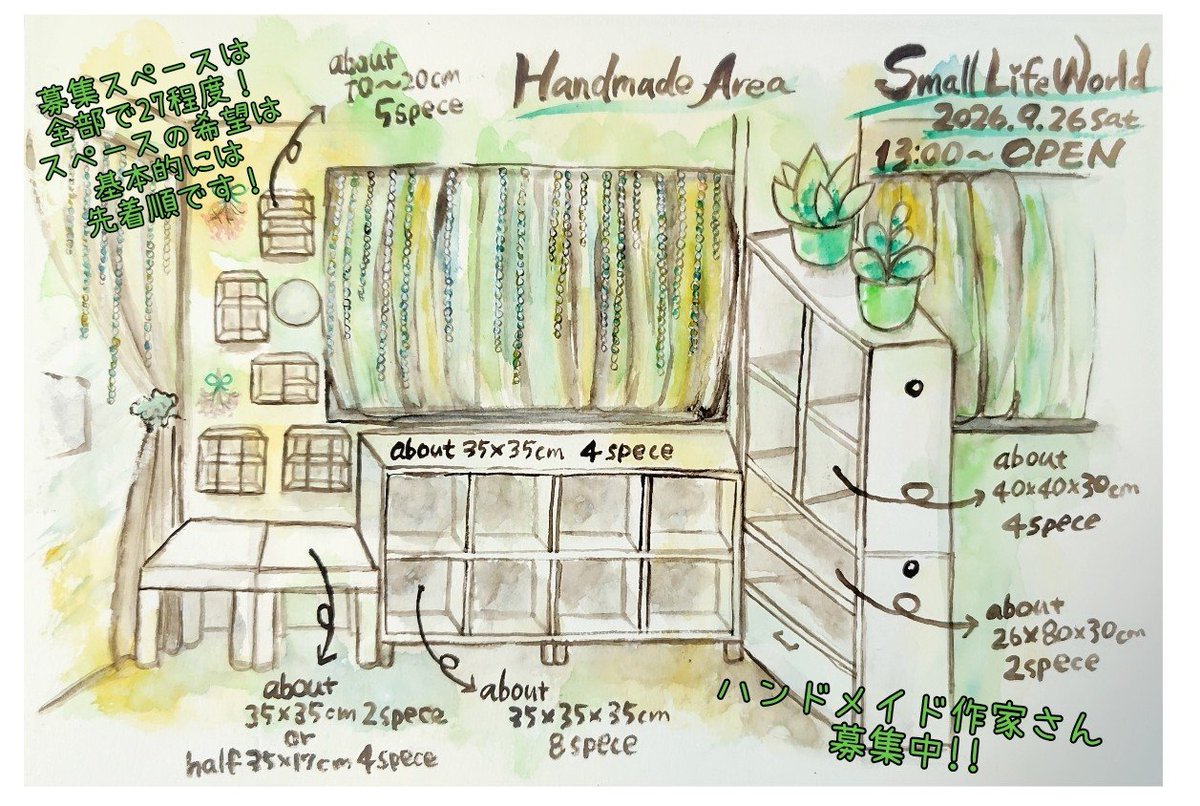 募集スペースは
全部で27程度！
スペースの希望は
基本的には
先着順です！
about
10〜20cm
5spece
Handmade Area
Small Life World
2026.9.26 sat
13:00〜OPEN
about 35×35cm 4spece
about
40×40×30cm
4spece
about
26×80×30cm
2spece
about
35×35cm 2spece
or
half 35×17cm 4spece
about
35×35×35cm
8spece
ハンドメイド作家さん
募集中!!